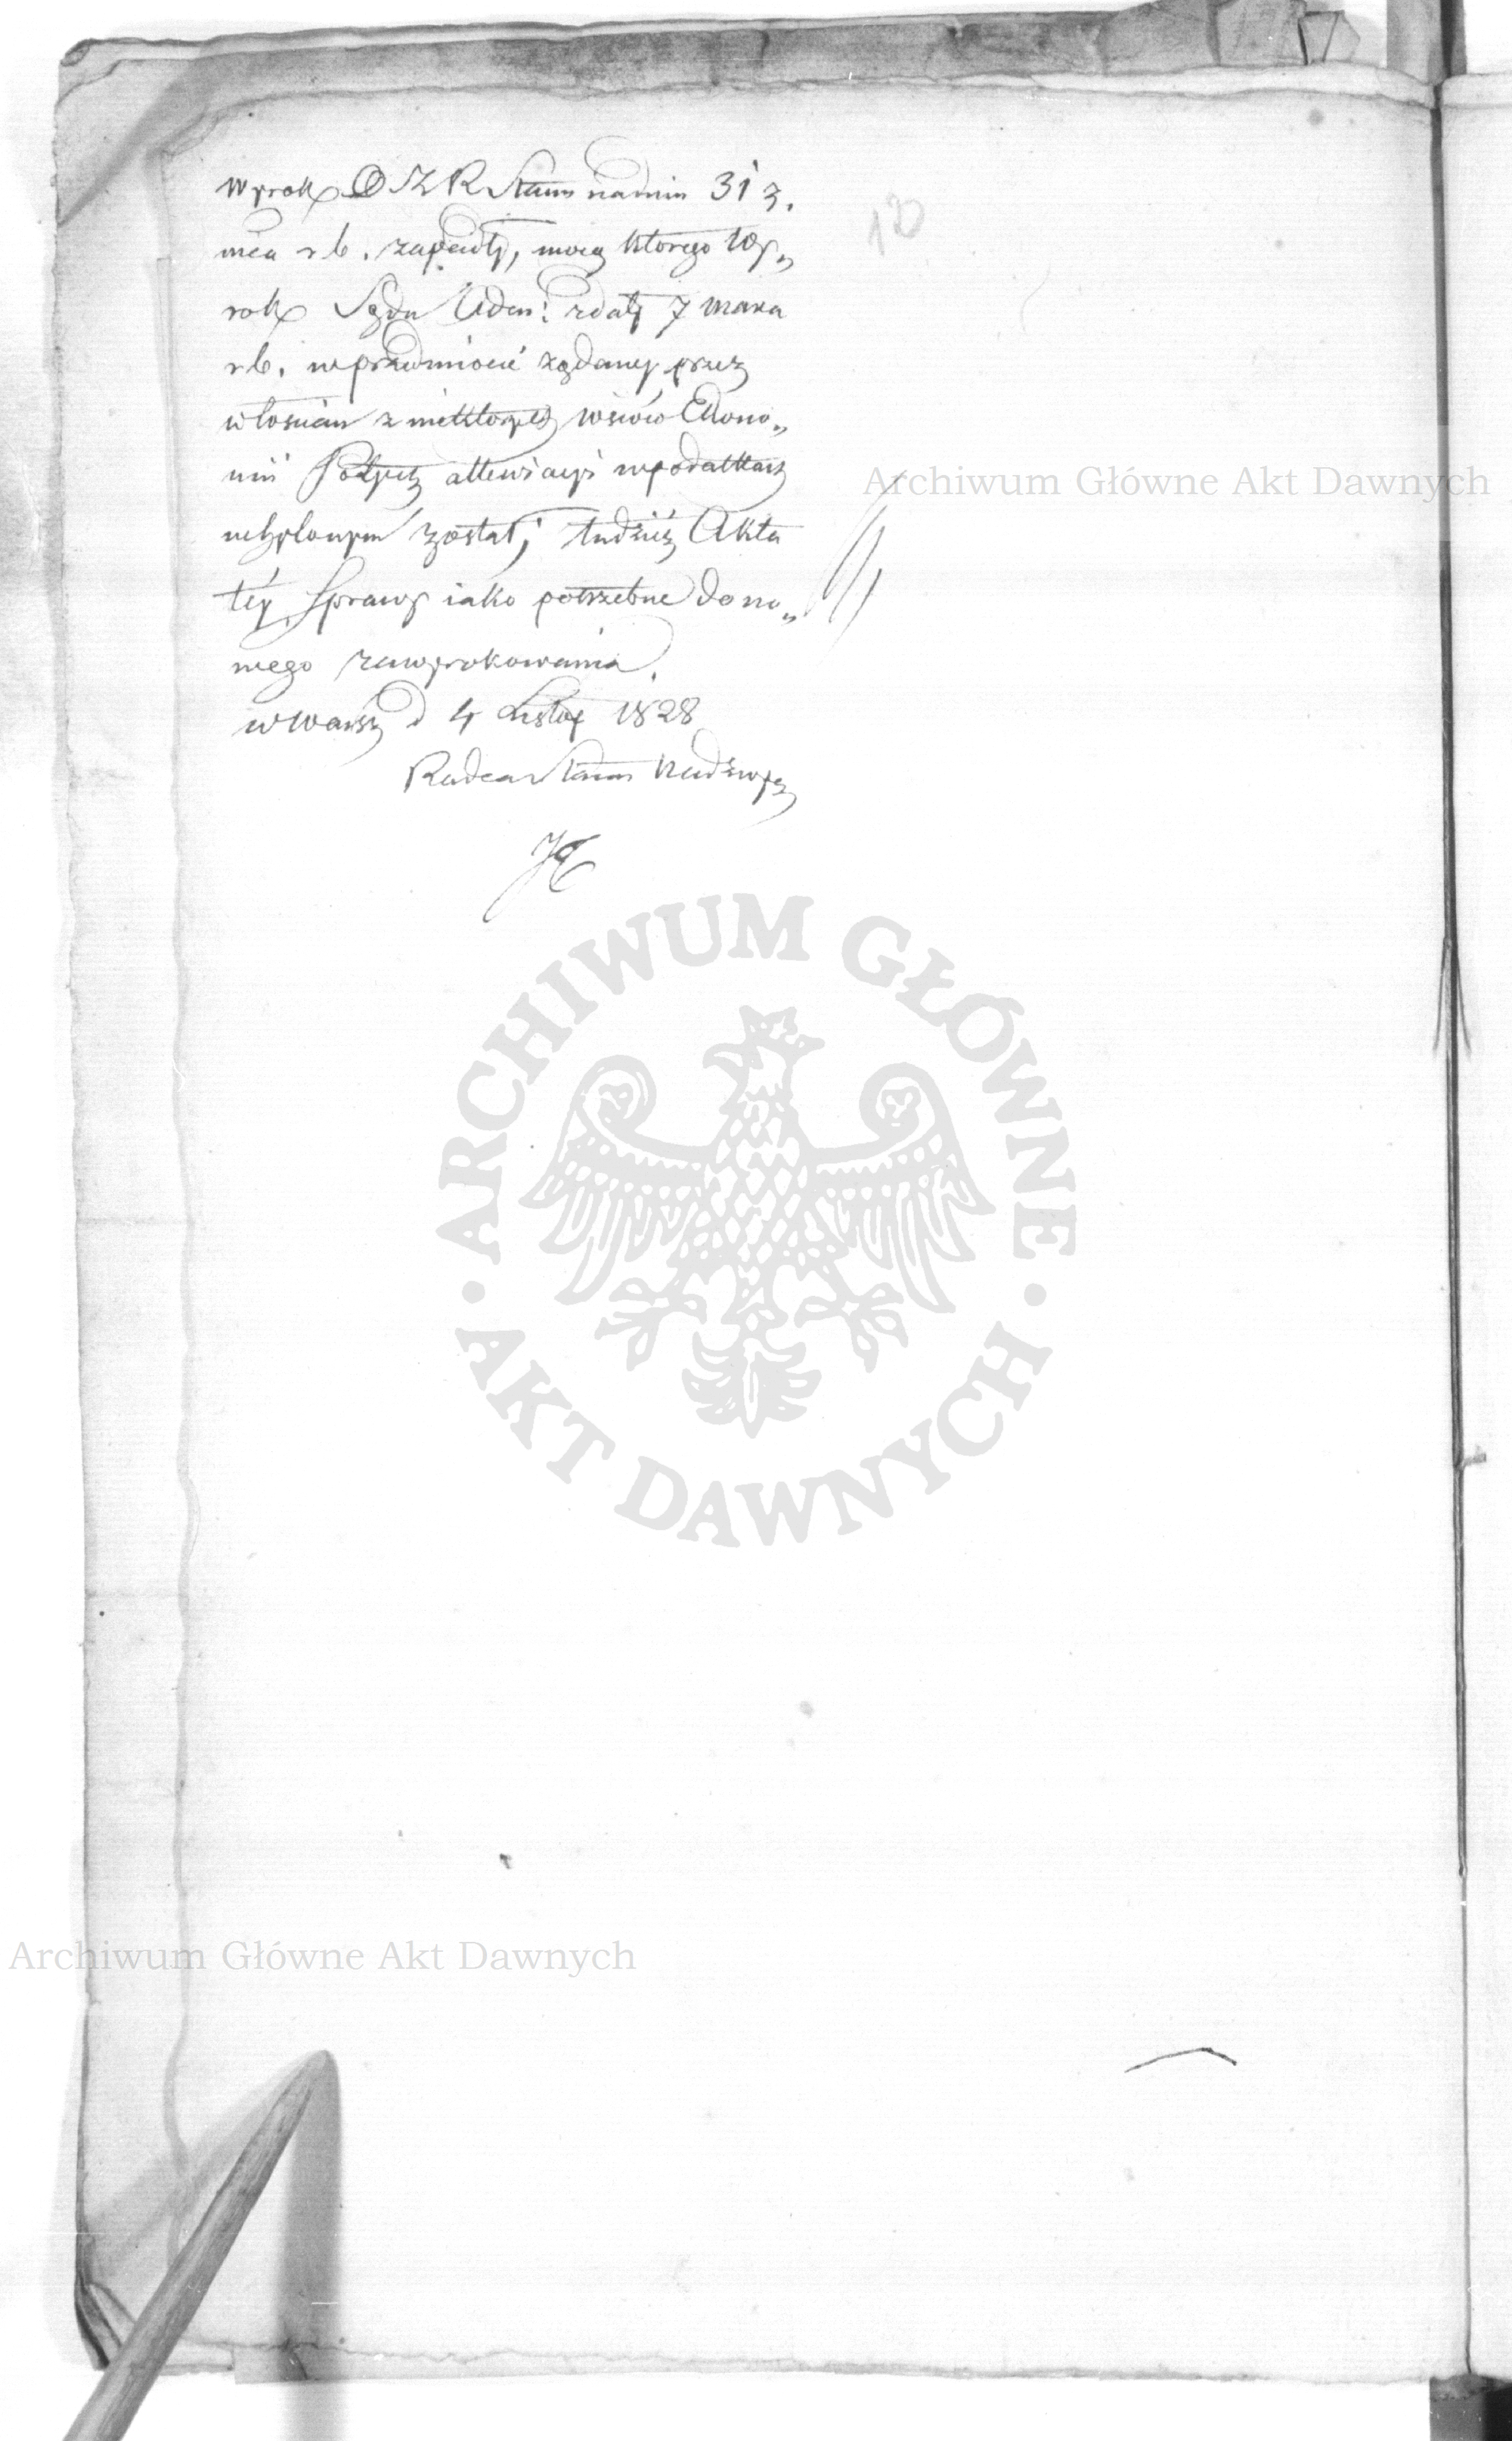 120
Wyrok O S Z R Stanu na dniu 31 z.
mca r b. zapadły, mocą którego Wy„
rok Sądu Adm: z daty 7 Marca
r b. w przedmiocie żądaney przez
włościan z niektórych wsiów Ekono„
mii allewiacyi w podatkach
uchylonym został, tudzież Akta
téy Sprawy iako potrzebne do no„
wego zawyrokowania.
w Warsz d 4 Listop 1828
Radca Stanu Nadzwycz
Archiwum Główne Akt Dawnych
ARCHIWUM GŁÓWNE
AKT DAWNYCH
Archiwum Główne Akt Dawnych